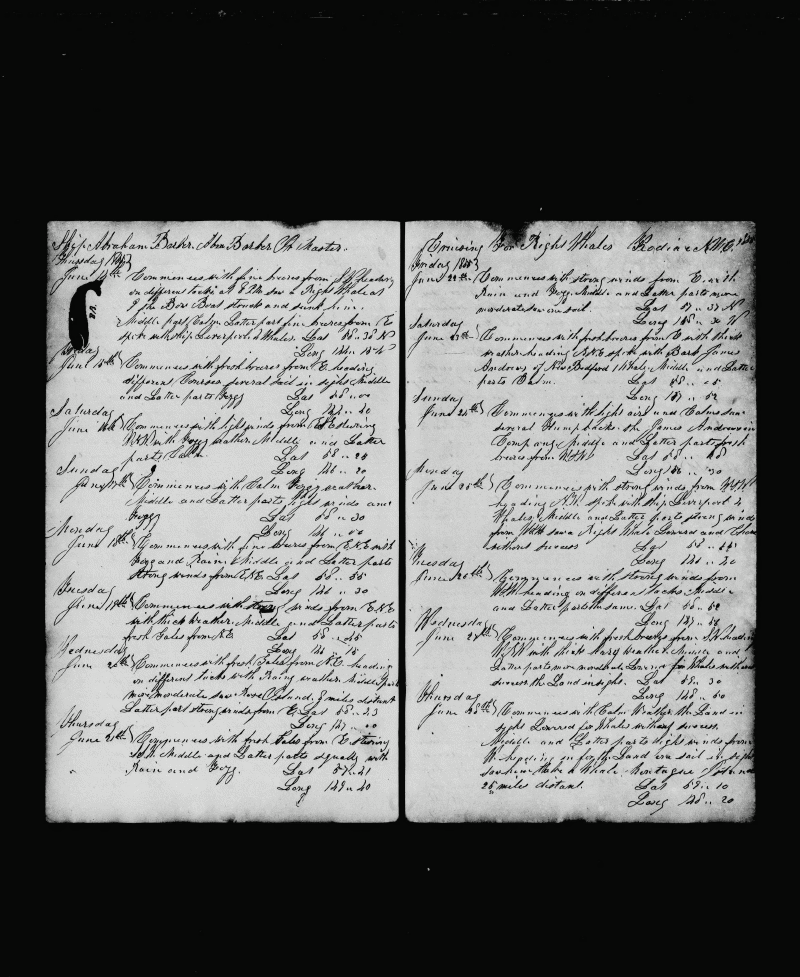 Ship Abraham Barker. Abm Barker Jr Master.
Thursday 1849
June 14th Commences with fine breezes from SW heading
on different tacks at 8 PM saw a Right Whale at
9 the Bow Boat struck and sunk him.
Middle part Calm Latter part fine breezes from E
spoke with ship Liverpool 2 Whales. Lat 58 .. 30 N
Friday Long 144 .. 15 W
June 15th Commences with fresh breezes from E heading
different Courses several sail in sight Middle
and Latter parts Fogg Lat 58 .. 00
Saturday Long
June 16th Commences with light winds from stearing
with Fogg weather Middle and Latter
parts Calm Lat 58 .. 24
Sunday Long 146 .. 20
June 17th Commences with Calm Foggy weather
Middle and Latter parts light winds and
Fogg Lat 58 .. 30
Monday Long
June 18th Commences with fine breezes from ENE with
Fogg and Rain Middle and Latter parts
strong winds from ENE Lat 58 .. 55
Tuesday Long 146 .. 30
June 19th Commences with strong winds from ENE
with thick weather Middle and Latter parts
fresh Gales from NE Lat 58 .. 45
Wednesday Long
June 20th Commences with fresh Gales from NE heading
on different tacks with Rainy weather Middle part
more moderate saw Island miles distant
Latter part strong winds from E Lat 58 .. 23
Thursday Long 147 .. 00
June 21st Commences with fresh Gales from E stearing
Middle and Latter parts squally with
Rain and Fogg. Lat 57 .. 21
Long 149 .. 40
Cruising For Right Whales Kodiac NWC
Friday
June 22nd Commences with strong winds from E with
Rain and Fogg. Middle and Latter parts more
moderate saw one sail. Lat 57 .. 37 N
Saturday Long 148 .. 30 W
June 23rd Commences with fresh breezes from E with thick
weather heading NNE spoke with Bark James
Andrews of New Bedford 1 Whale Middle and Latter
parts Calm. Lat 58 .. 05
Sunday Long 147 .. 52
June 24th Commences with light airs and Calms saw
several Humpbacks the James Andrews in
Company Middle and Latter parts fresh
breezes from Lat 58 .. 48
Monday Long .. 30
June 25th Commences with strong winds from
heading NW spoke with ship Liverpool 4
Whales Middle and Latter parts strong winds
from saw a Right Whale Lowered and Chased
without success Lat 58 .. 45
Tuesday Long .. 20
June 26th Commences with strong winds from
heading on different tacks Middle
and Latter parts the same. Lat 58 .. 52
Wednesday Long 147 .. 50
June 27th Commences with fresh breezes from SW heading
with thick hazy weather Middle and
Latter parts more moderate Lowered for Whales without
success the Land in sight. Lat 59 .. 30
Thursday Long 148 .. 50
June 28th Commences with Calm Weather the Land in
sight Lowered for Whales without success.
Middle and Latter parts light winds from
W Land one sail in sight
take a Whale Montague Island
25 miles distant. Lat 59 .. 10
Long 148 .. 20